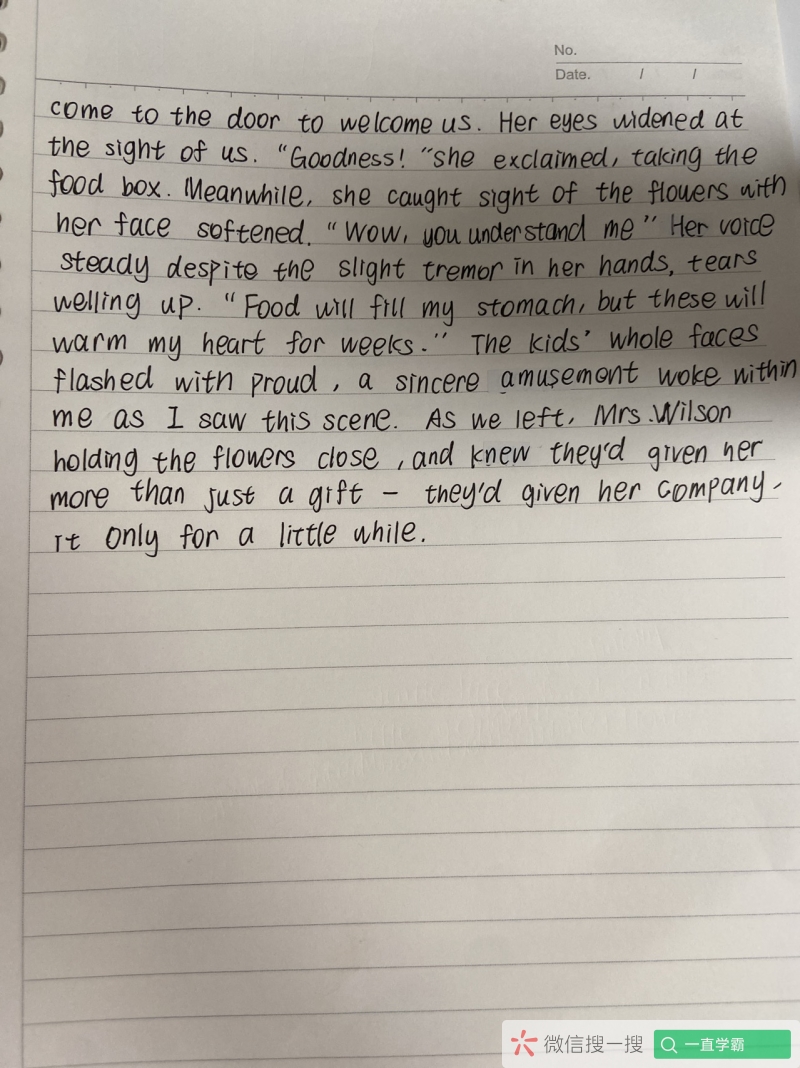 No.
Date. / /
come to the door to welcome us. Her eyes widened at
the sight of us. "Goodness! "she exclaimed, taking the
food box. Meanwhile, she caught sight of the flowers with
her face softened. "Wow, you understand me" Her voice
steady despite the slight tremor in her hands, tears
welling up. "Food will fill my stomach, but these will
warm my heart for weeks." The kids' whole faces
flashed with proud, a sincere amusement woke within
me as I saw this scene. As we left, Mrs.Wilson
holding the flowers close, and knew they'd given her
more than just a gift – they'd given her company,
it only for a little while.
微信搜一搜
一直学霸